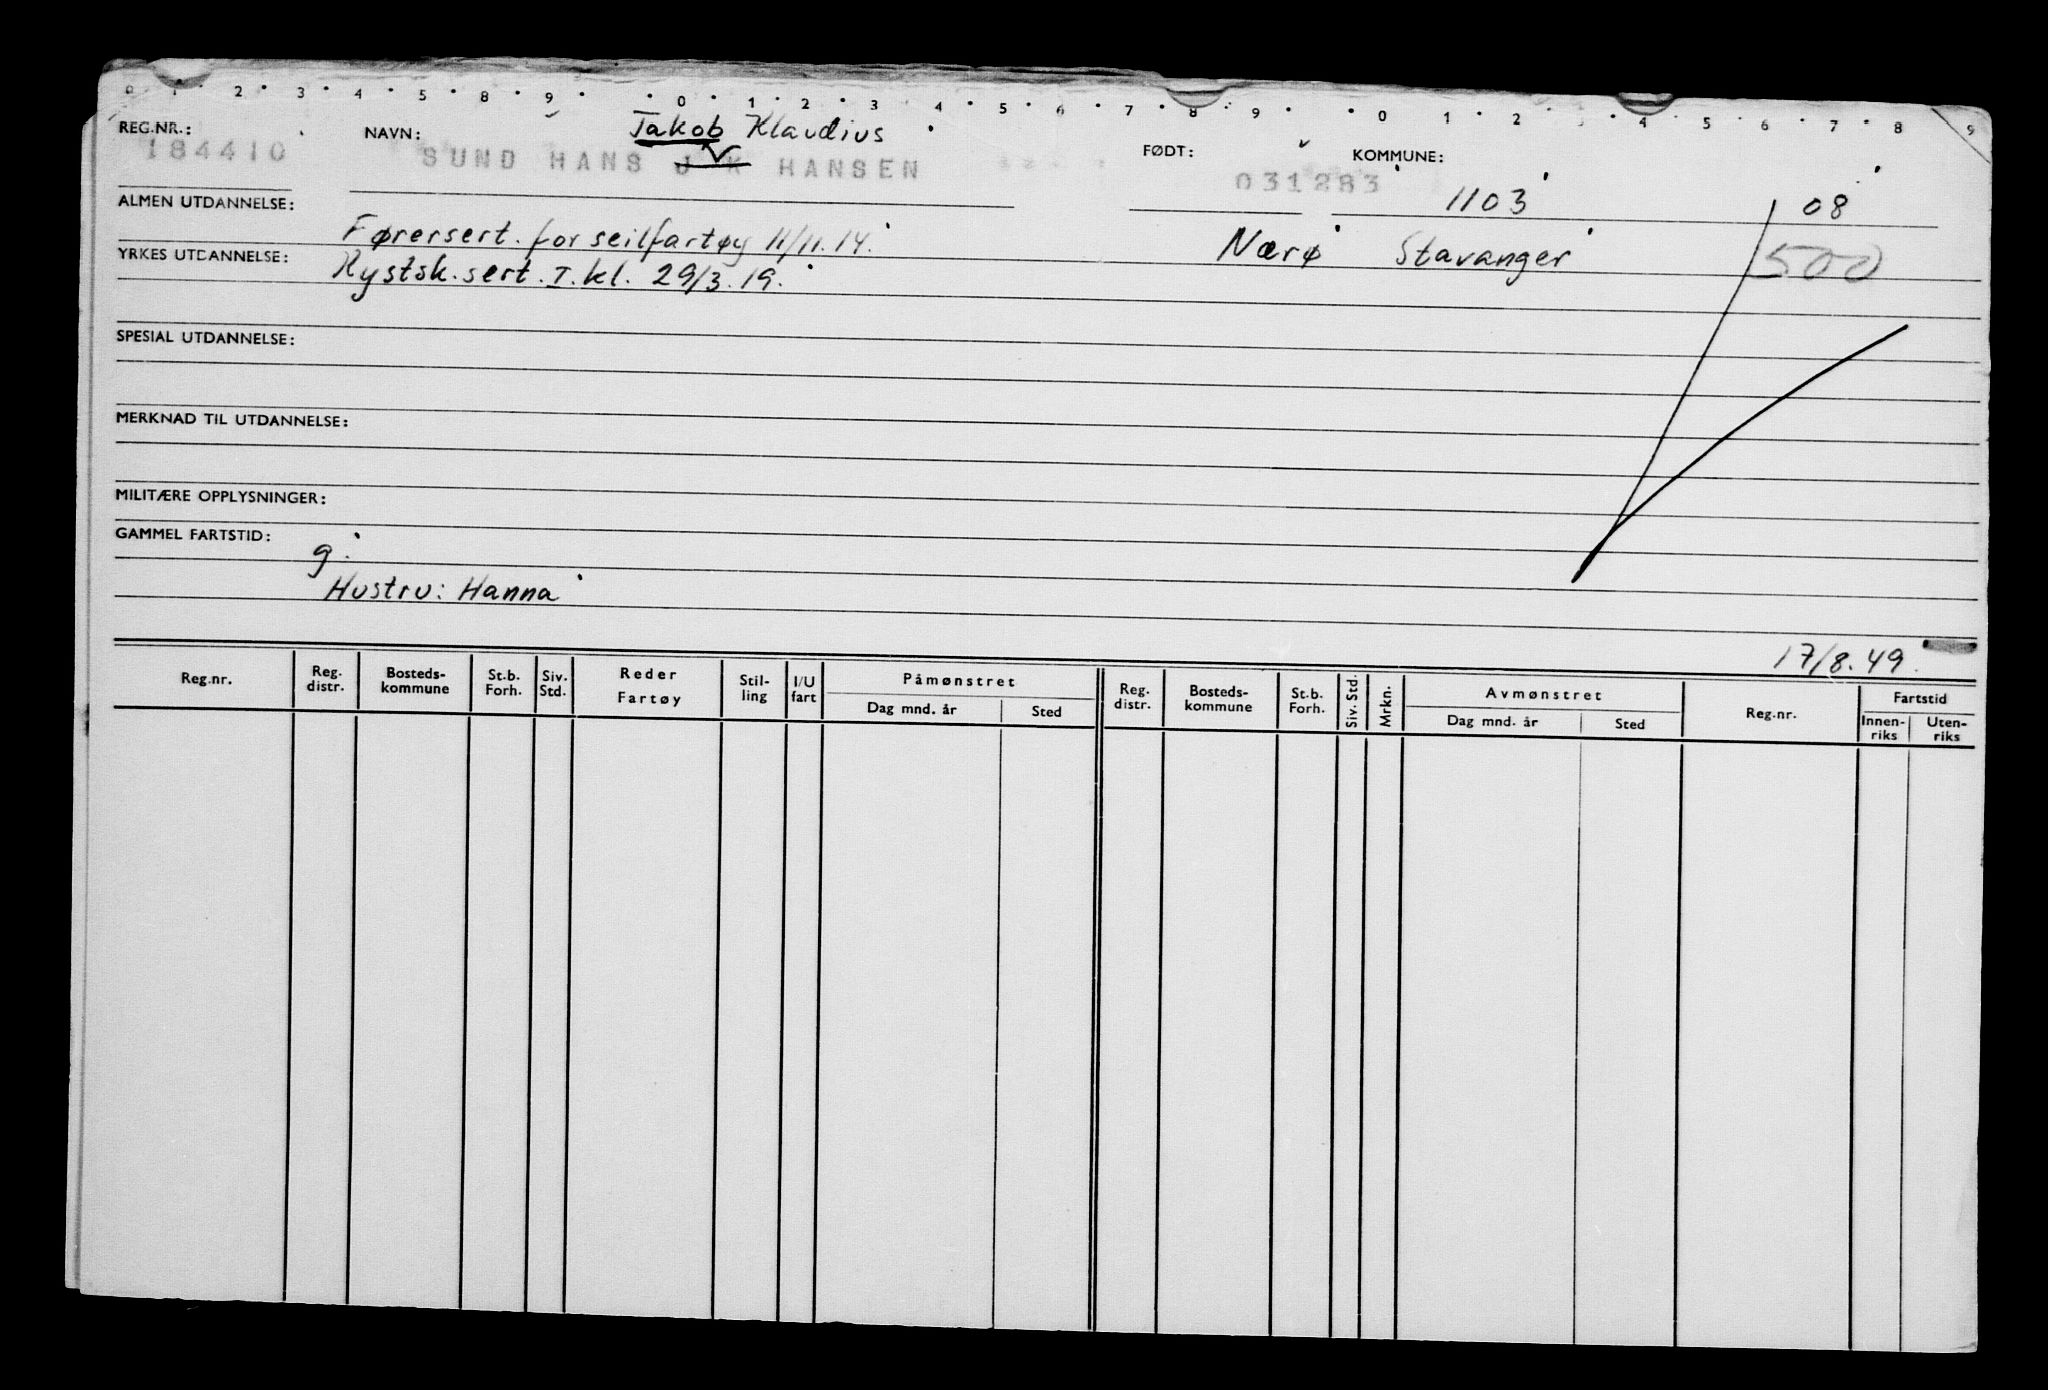 0 1 2 3 4 5 8 9 0 1 2 3 4 5 6 7 8 9 0 1 2 3 4 5 6 7 8 9
REG.NR.: NAVN: Jakob Klaudius FØDT: KOMMUNE:
184410 SUND HANS J K HANSEN 031283 1103 08
ALMEN UTDANNELSE: Førersert. for seilfartøy 11/11.14. Nærø Stavanger 500
YRKES UTDANNELSE: Kystsk. sert. I. kl. 29/3.19.
SPESIAL UTDANNELSE:
MERKNAD TIL UTDANNELSE:
MILITÆRE OPPLYSNINGER:
GAMMEL FARTSTID:
g.
Hustru: Hanna
17/8.49.
Reg.nr. Reg. distr. Bosteds-kommune St.b. Forh. Siv. Std. Reder Fartøy Stil-ling I/U fart Påmønstret Dag mnd. år Sted Reg. distr. Bosteds-kommune St.b. Forh. Siv. Std. Mrkn. Avmønstret Dag mnd. år Sted Reg.nr. Fartstid Innen-riks Uten-riks